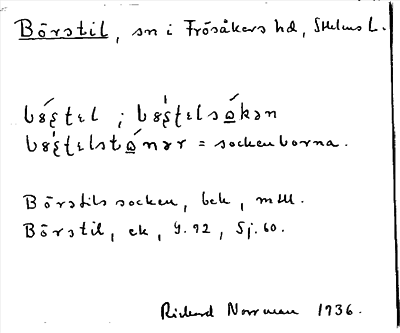 Börstil, sn i Frösåkers hd, Sthlms L.
bö́ʂtɩl ; bö́ʂtɩlsǫ́kən
bö́ʂtɩlstǫ́nər = sockenborna.
Börstils socken, bek, mtll.
Börstil, ek, G. 92, Sj. 60.
Rickard Norrman 1936.